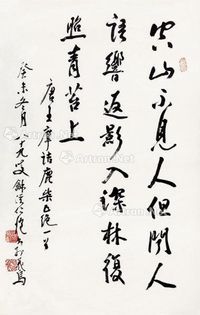 空山不見人但聞人
語響返影入深林復
照青苔上
唐王摩詰鹿柴五絕一首
癸未冬月八十九叟